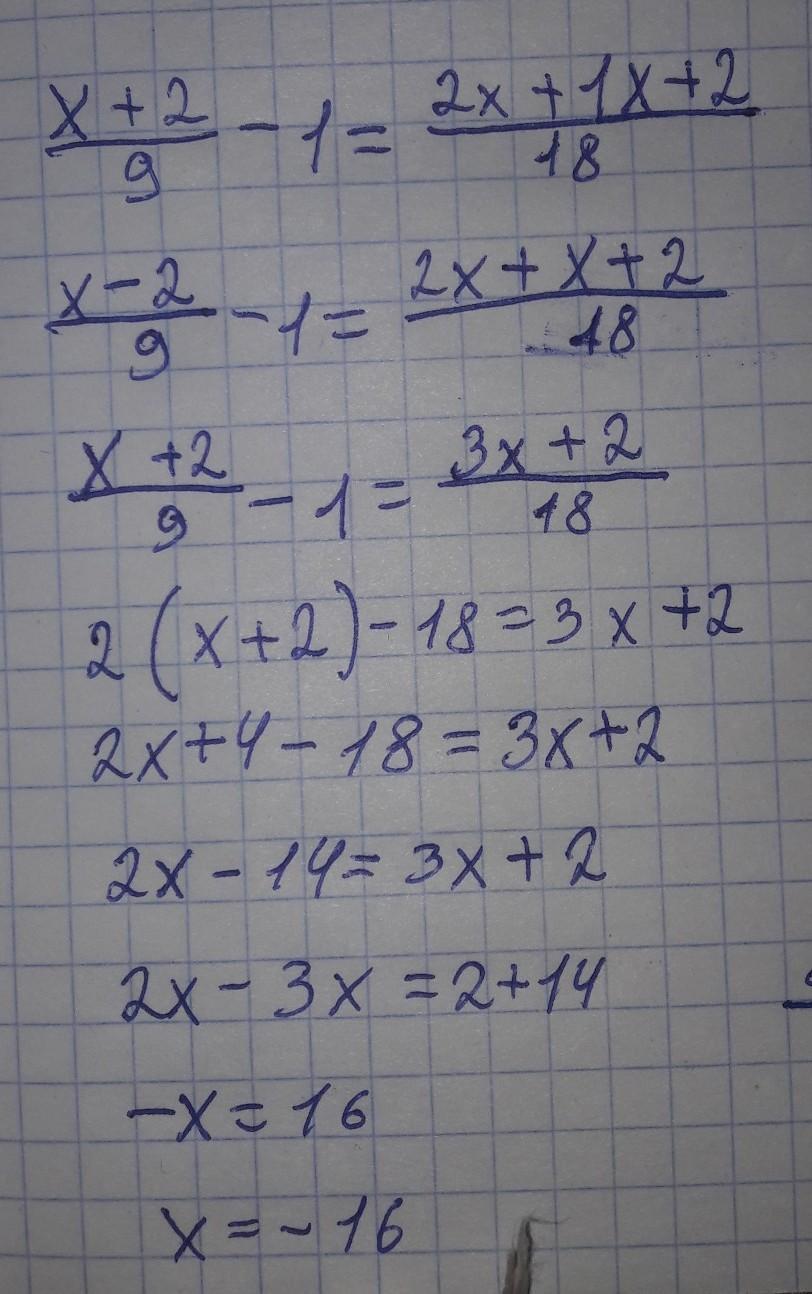 x + 2 / 9 - 1 = 2x + 1x + 2 / 18
x - 2 / 9 - 1 = 2x + x + 2 / 18
x + 2 / 9 - 1 = 3x + 2 / 18
2 (x + 2) - 18 = 3x + 2
2x + 4 - 18 = 3x + 2
2x - 14 = 3x + 2
2x - 3x = 2 + 14
-x = 16
x = - 16